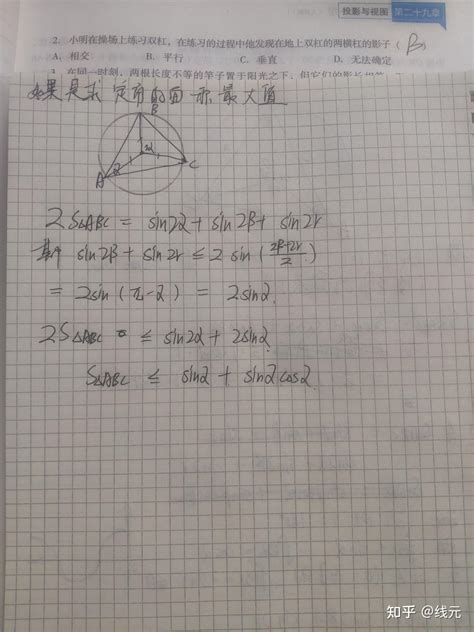 投影与视图 第二十九章
2. 小明在操场上练习双杠，在练习的过程中他发现在地上双杠的两横杠的影子（ B ）
A. 相交 B. 平行 C. 垂直 D. 无法确定
3. 在同一时刻，两根长度不等的竿子置于阳光之下，但它们的影长相等
如果是求 定角的面积最大值
B
2
A 2 C
2S△ABC = sin2α + sin2β + sin2r
其中 sin2β + sin2r ≤ 2 sin (2β+2r/2)
= 2sin (π-α) = 2sinα.
2S△ABC ≤ sin2α + 2sinα
S△ABC ≤ sinα + sinαcosα
知乎 @线元